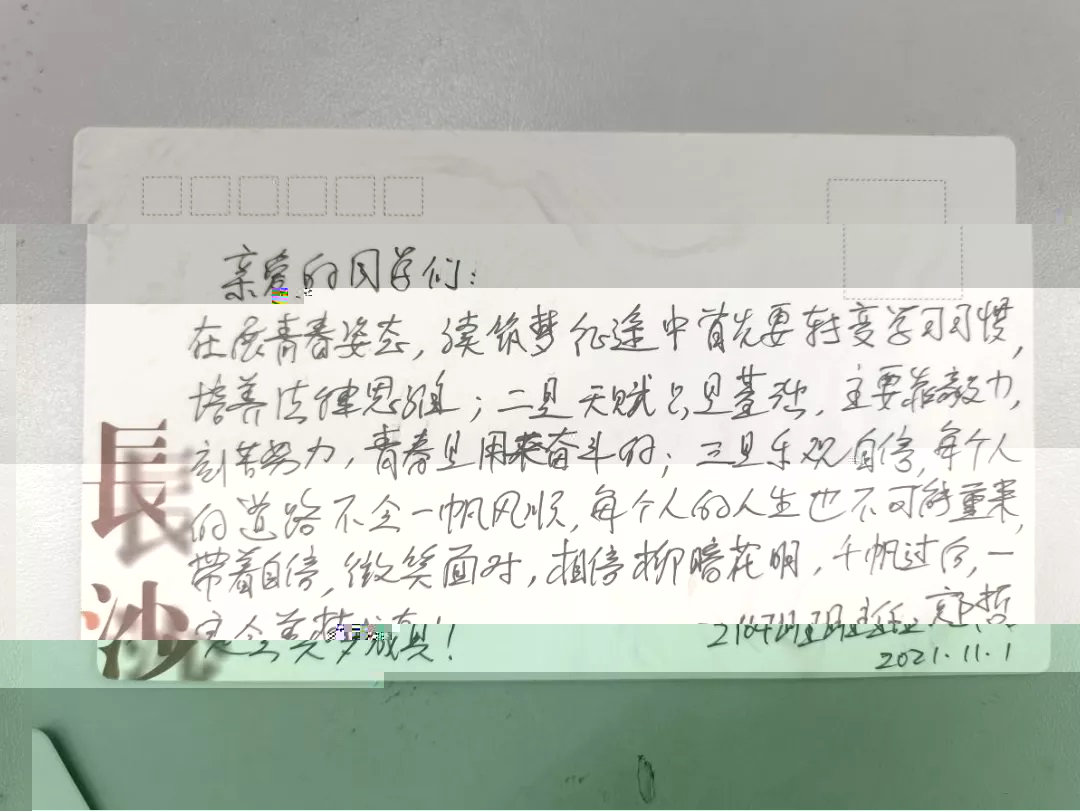 亲爱的同学们：
在展青春姿态，续筑梦征途中首先要转变学习习惯，
培养法律思维；二是天赋只是基础，主要靠毅力，
刻苦努力，青春是用来奋斗的；三是乐观自信，每个人
的道路不会一帆风顺，每个人的人生也不可能重来，
带着自信，微笑面对，相信柳暗花明，千帆过后，一
定会美梦成真！
班主任 郭哲
2021.11.1
長沙